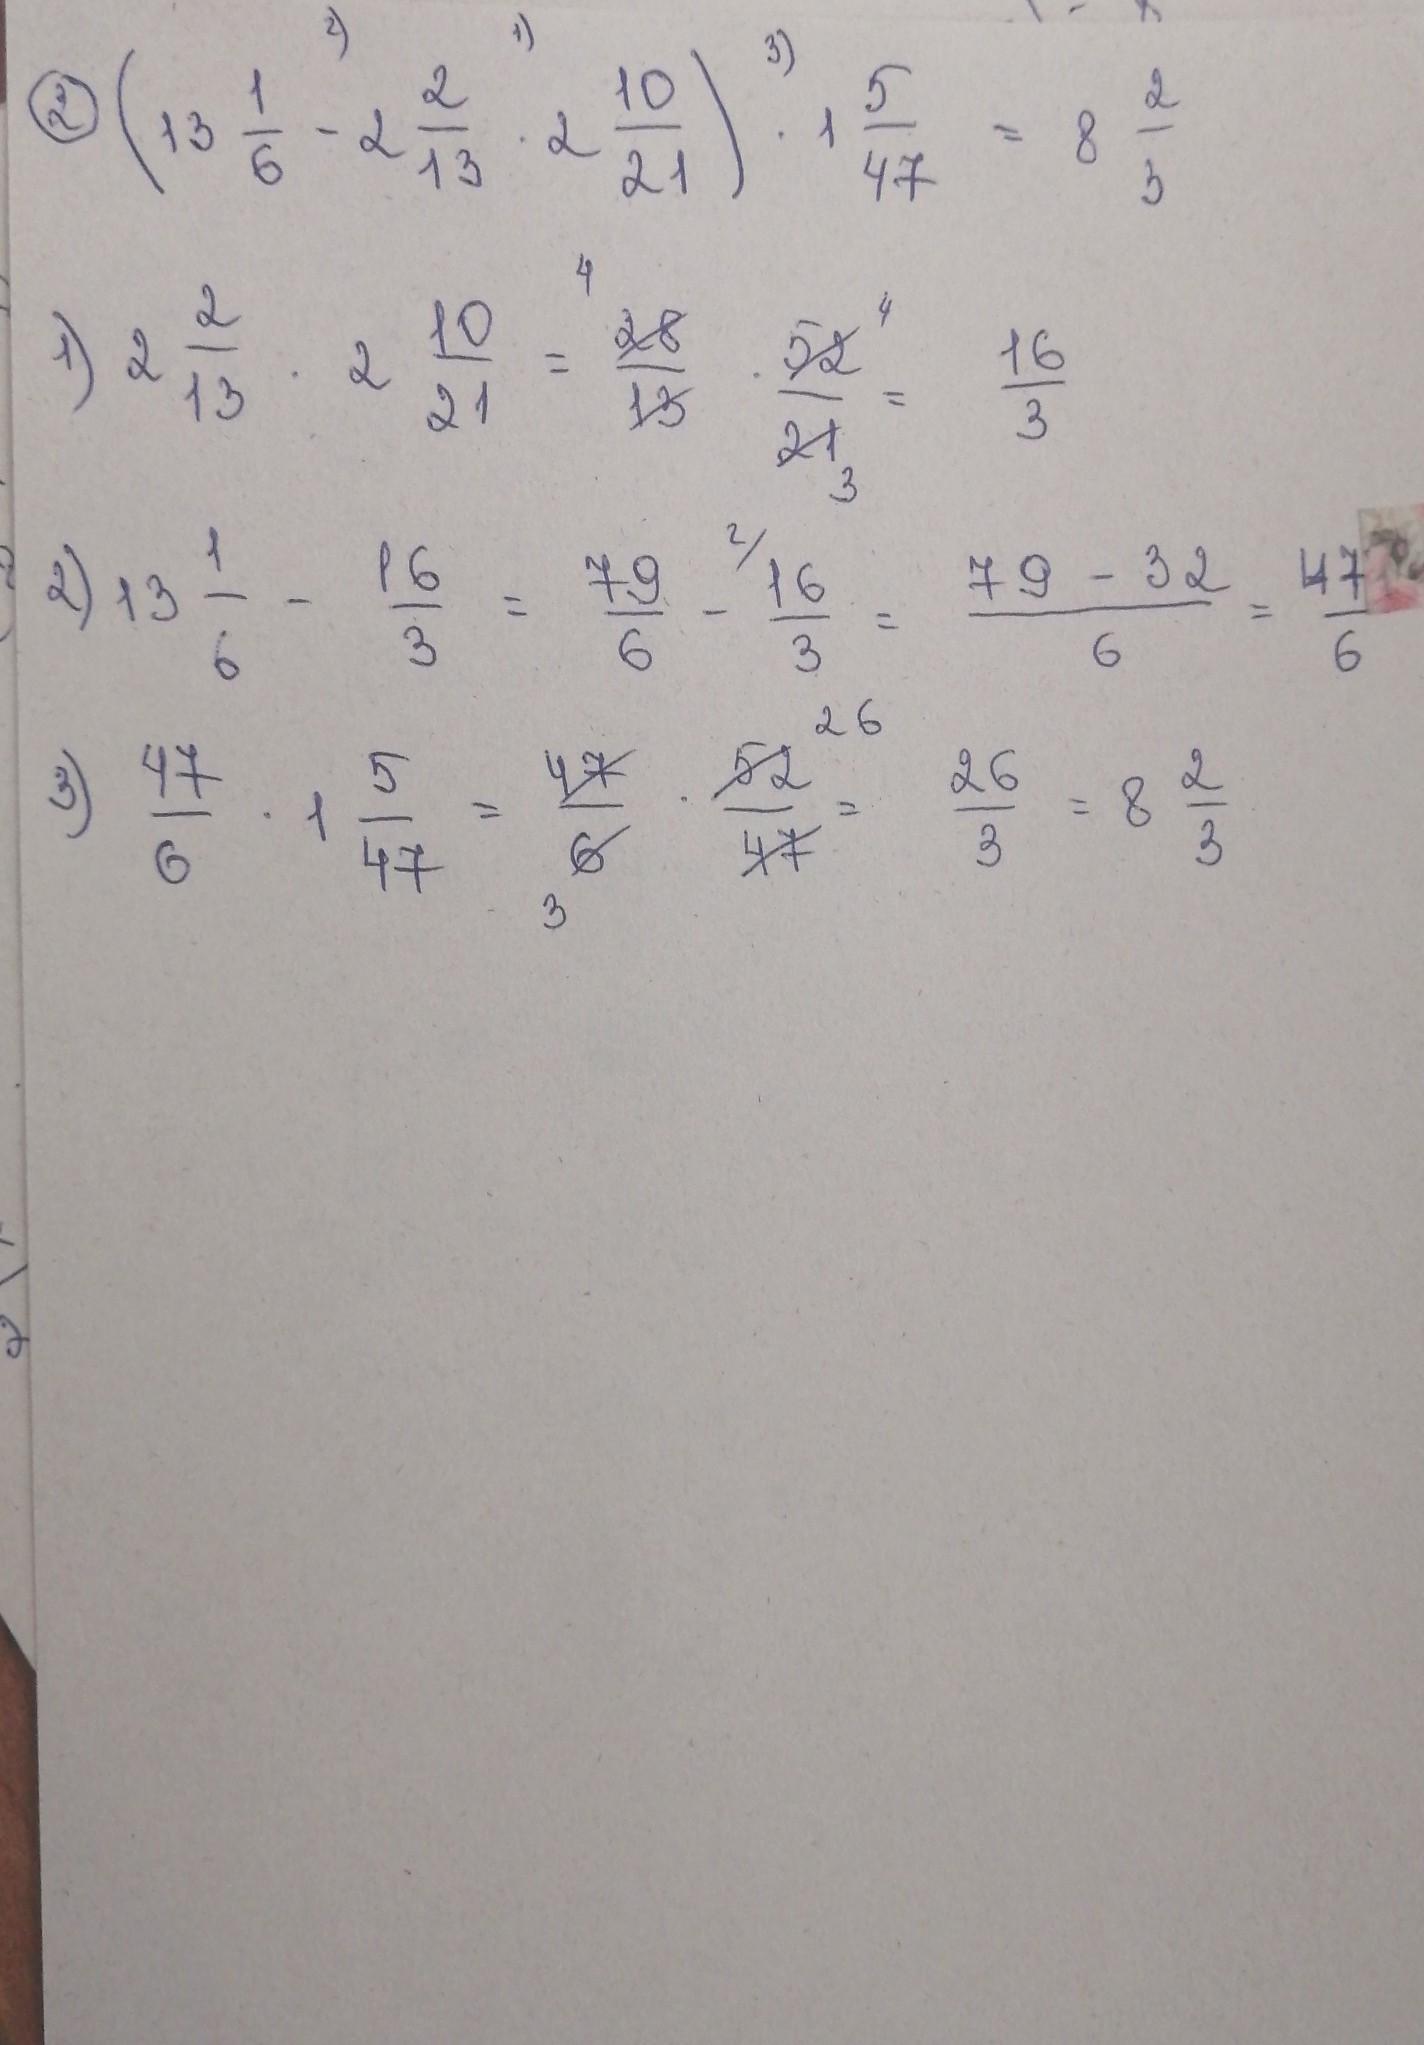 2) (13 1/6 - 2 2/13 · 2 10/21) · 1 5/47 = 8 2/3
1) 2 2/13 · 2 10/21 = 28/13 · 52/21 = 16/3
2) 13 1/6 - 16/3 = 79/6 - 16/3 = 79 - 32/6 = 47/6
3) 47/6 · 1 5/47 = 47/6 · 52/47 = 26/3 = 8 2/3